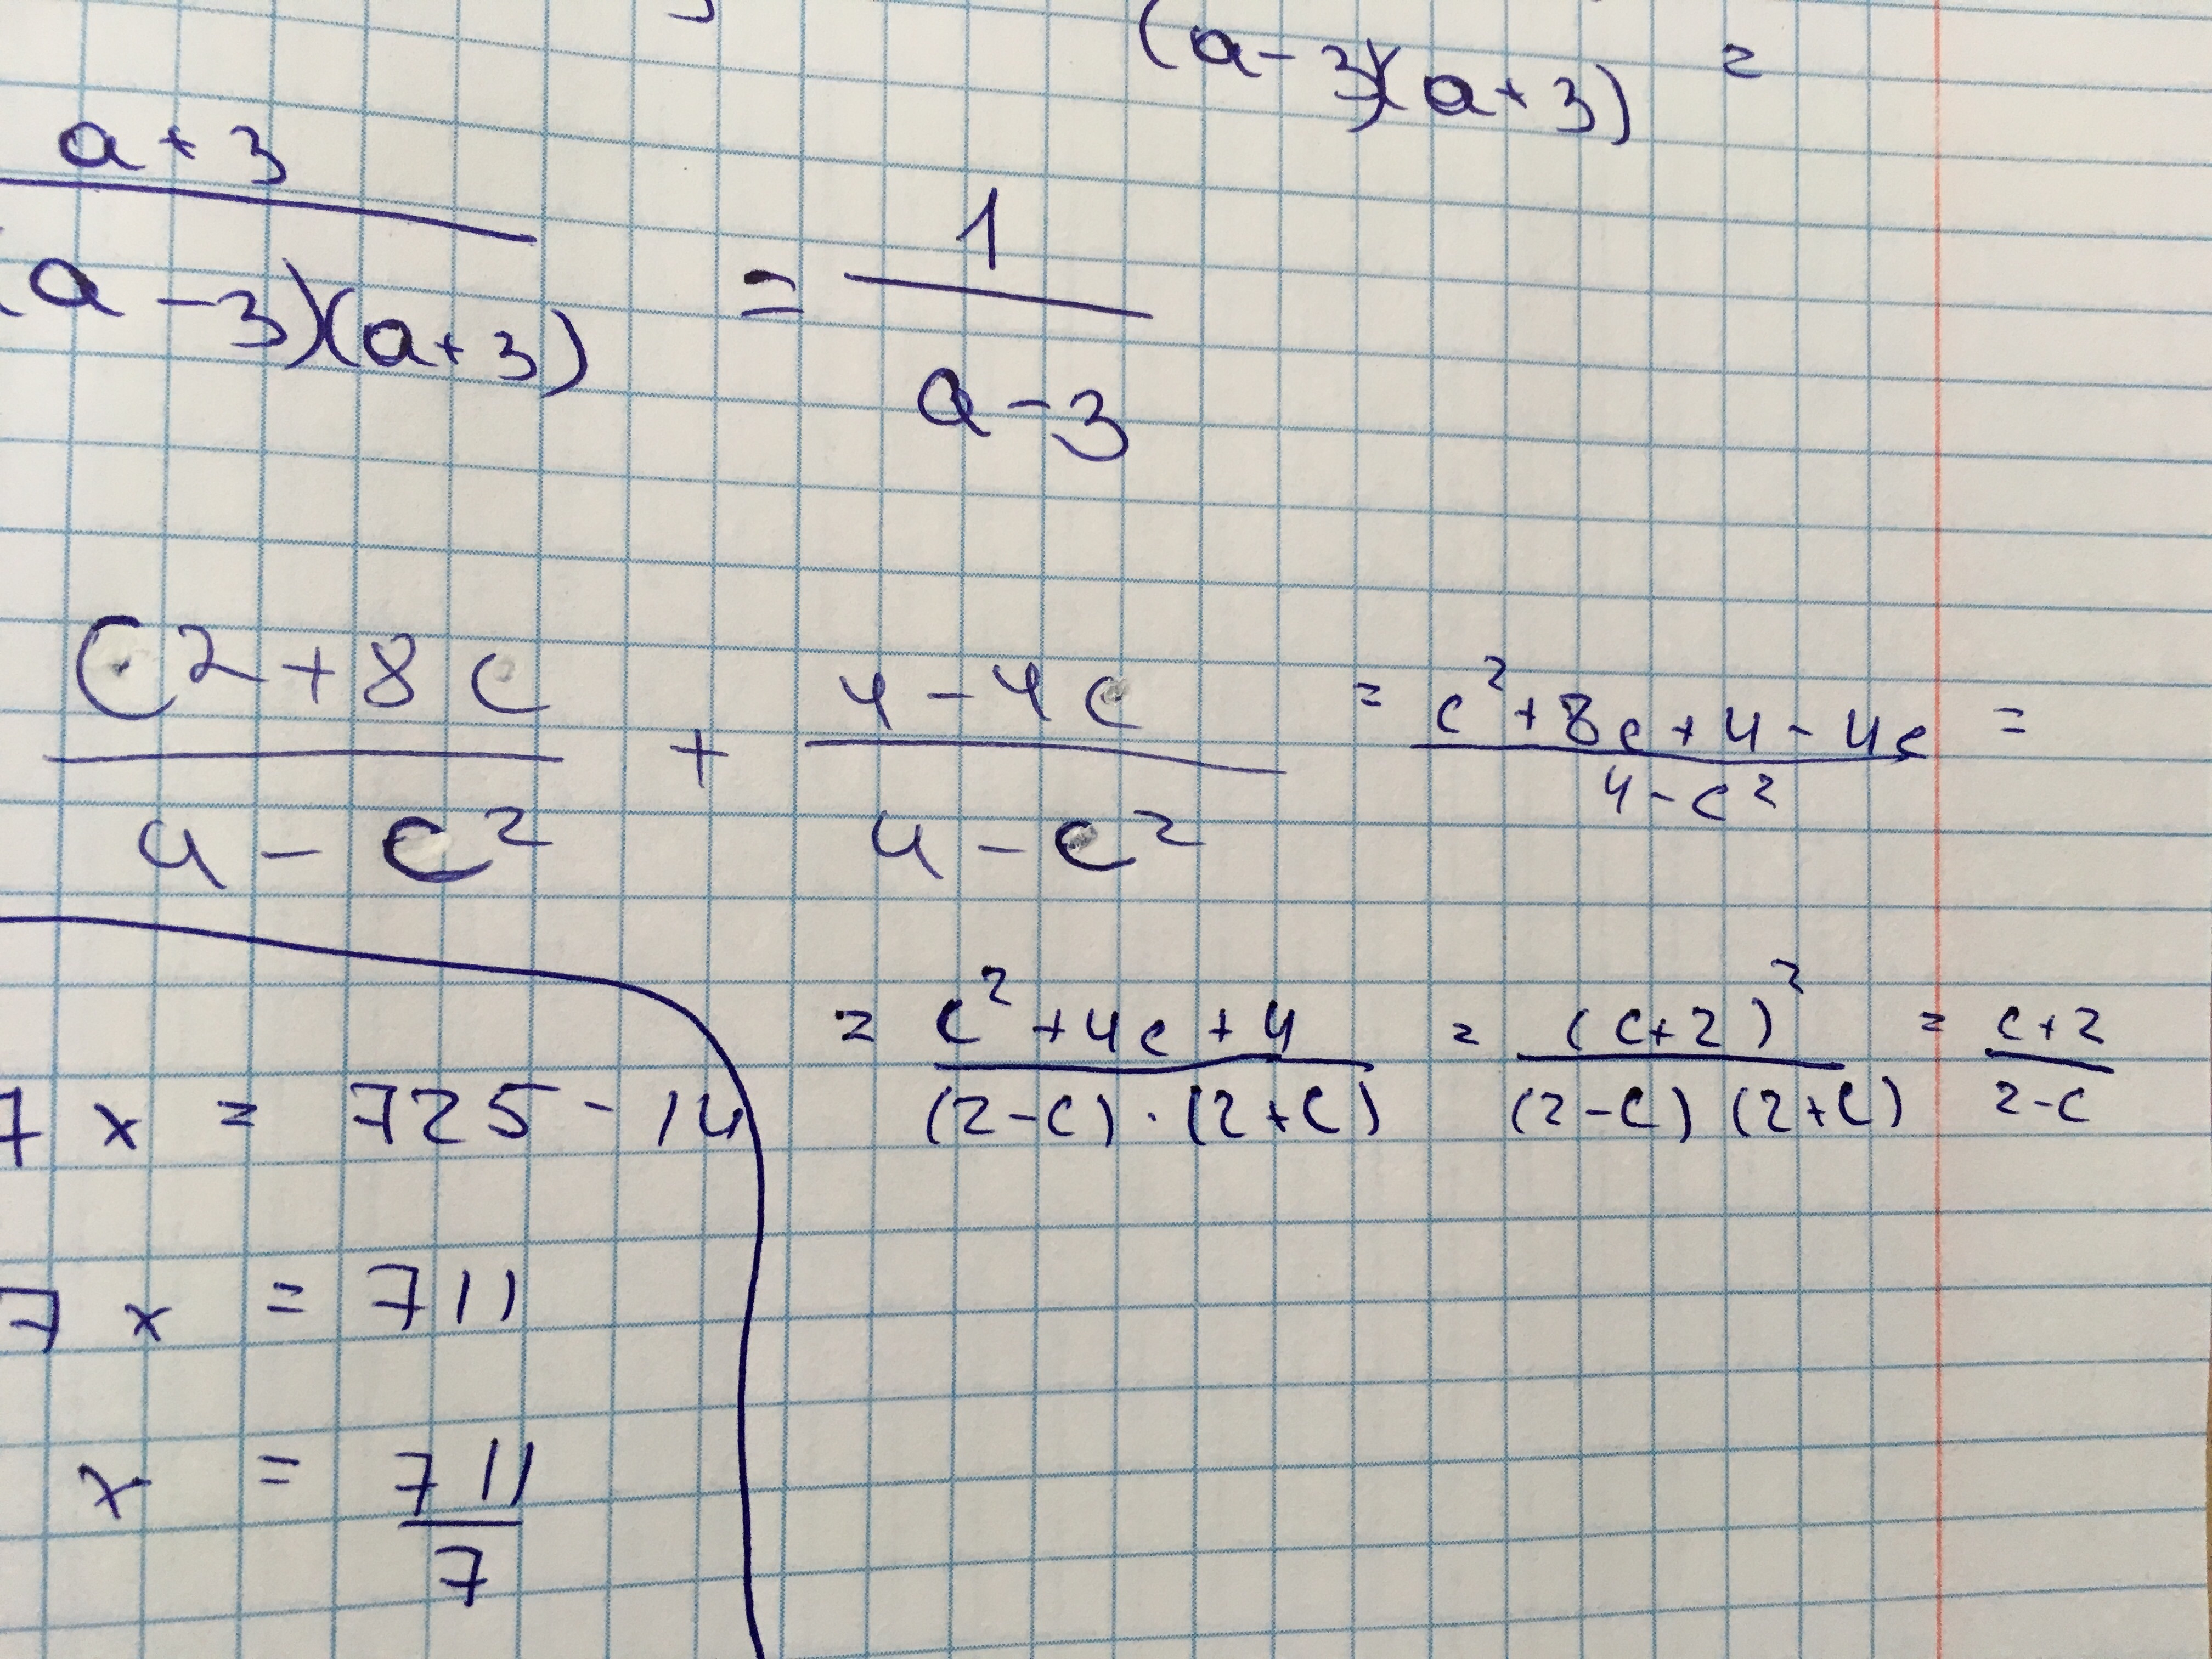 (a-3)(a+3) =
a+3
(a-3)(a+3) = 1
a-3
c2+8c / 4-c² + 4-4c / 4-c² = c²+8c+4-4c / 4-c² =
= c²+4c+4 / (2-c)·(2+c) = (c+2)² / (2-c)(2+c) = c+2 / 2-c
7x = 725-14
7x = 711
x = 711 / 7